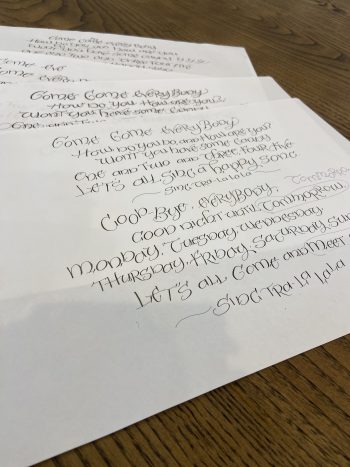 Come Come everybody
How Do you and How are you?
Won't you have some
Come Come eve
Come every
Come Come everybody
How Do you and How are you?
Won't you have some
One
Come Come everybody
How Do you and How are you?
Won't you have some candy
One and Two and Three, Four, Five
Let's all sing a happy song
~ Sing tra-la lala
Good-Bye, everybody,
Good night until tommorrow.
Monday, Tuesday, Wednesday
Thursday, Friday, Saturday, Su
Let's all Come and meet
~ Sing Tra-la lala